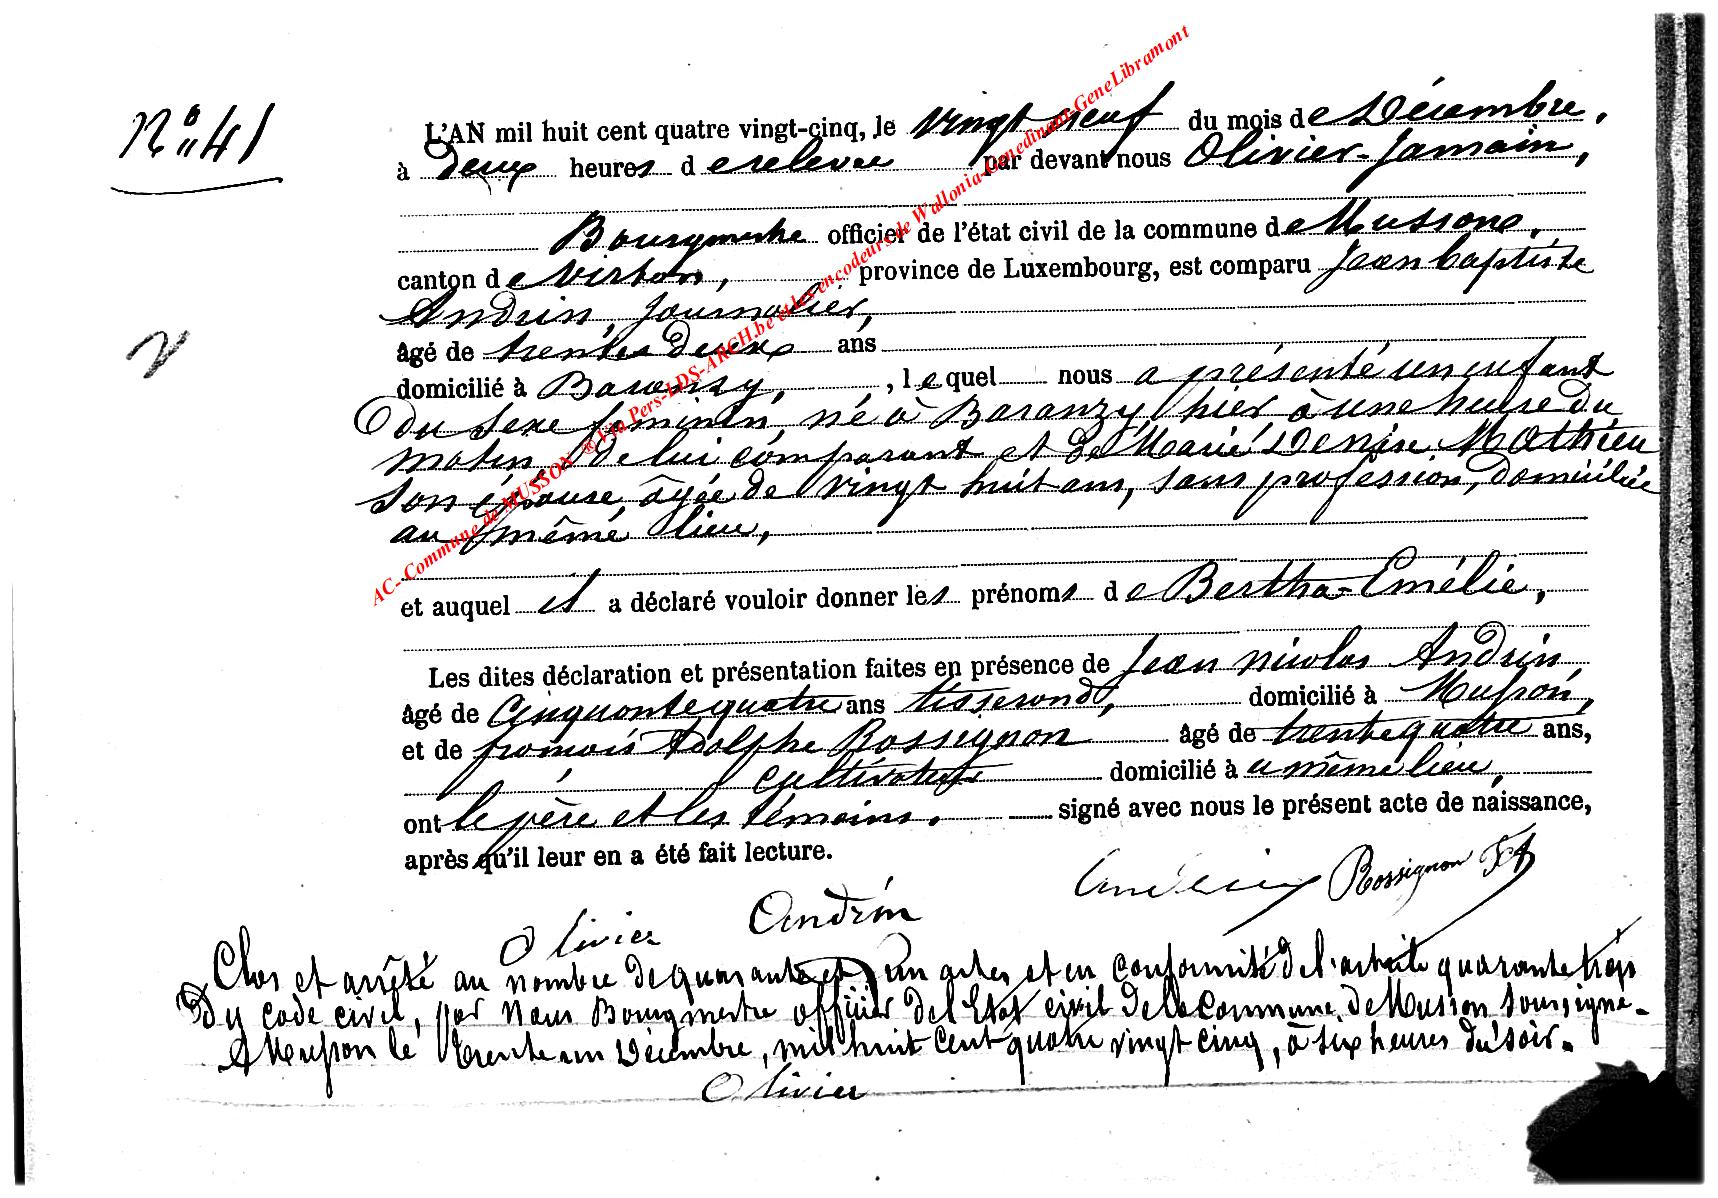 N° 41
L'AN mil huit cent quatre vingt-cinq, le vingt neuf du mois de Décembre,
à deux heures de relevée par devant nous Olivier-Jamain,
Bourgmestre officier de l'état civil de la commune de Mussone,
canton de Virton, province de Luxembourg, est comparu Jean baptiste
Andrin, journalier,
âgé de trente deux ans
domicilié à Baranzy, , lequel nous a présenté un enfant
du sexe féminin, né à Baranzy, hier à une heure du
matin, de lui comparant et de Marie Denise Mathieu
son épouse, âgée de vingt huit ans, sans profession, domiciliée
au même lieu,
et auquel il a déclaré vouloir donner les prénoms de Bertha-Emélie,
Les dites déclaration et présentation faites en présence de Jean nicolas Andrin,
âgé de Cinquante quatre ans tisserand, domicilié à Musson,
et de francois Adolphe Rossignon âgé de trente quatre ans,
cultivateur domicilié au même lieu,
ont le père et les témoins. signé avec nous le présent acte de naissance,
après qu'il leur en a été fait lecture.
Andrin Rossignon
Olivier Andrin
Clos et arrêté au nombre de quarante et un actes, et en conformité de l'article quarante trois
Du code civil, par Nous Bourgmestre officier de l'Etat civil de la commune de Musson soussigné-
A Musson le Trente un Décembre, mil huit cent quatre vingt cinq, à six heures du soir.
Olivier
AC- Commune de MUSSON ® Via Pers-LDS-ARCH.be et les encodeurs de Wallonia-Genedinant-GeneLibramont